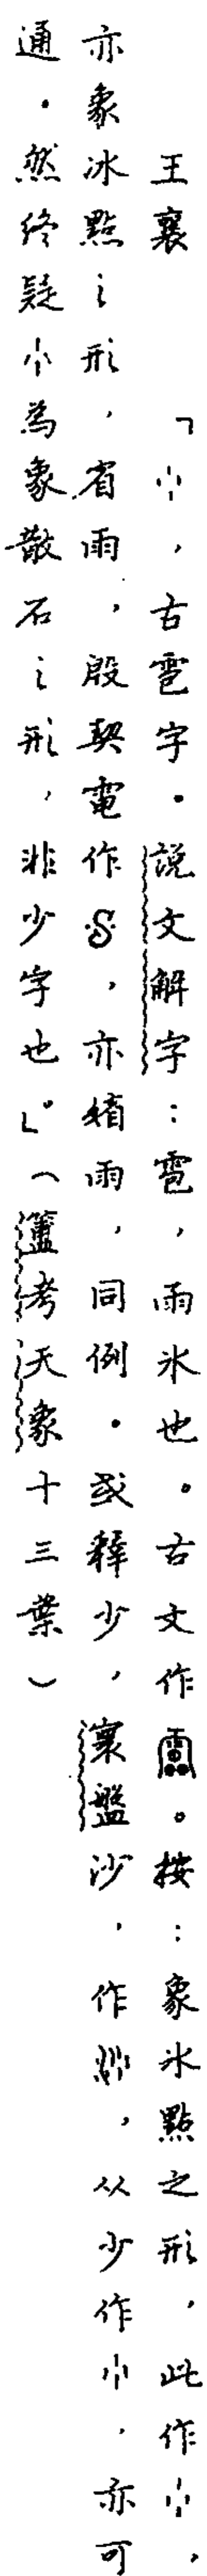 王襄　「⺌，古雹字．說文解字：雹，雨冰也。古文作。按：象冰點之形，此作⺌，
亦象冰點之形，省雨，殷契電作，亦媘雨，同例．或釋少，寰盤沙，作，从少作⺌，亦可
通．然終疑⺌為象散石之形，非少字也。」（簠考天象十三葉）